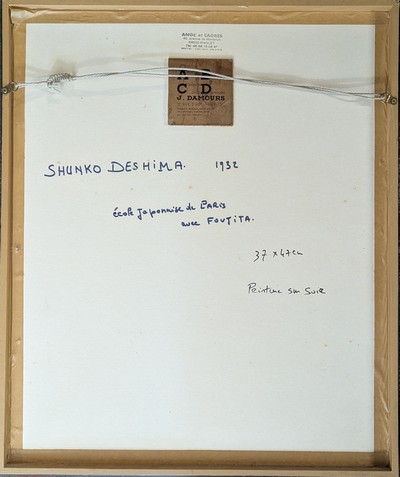 ANGL' et CADRES
A B
C D
J. DAMOURS
SHUNKO DESHIMA. 1932
école Japonaise de PARIS
avec FOUJITA.
37 x 47 cm
Peinture sur Soie